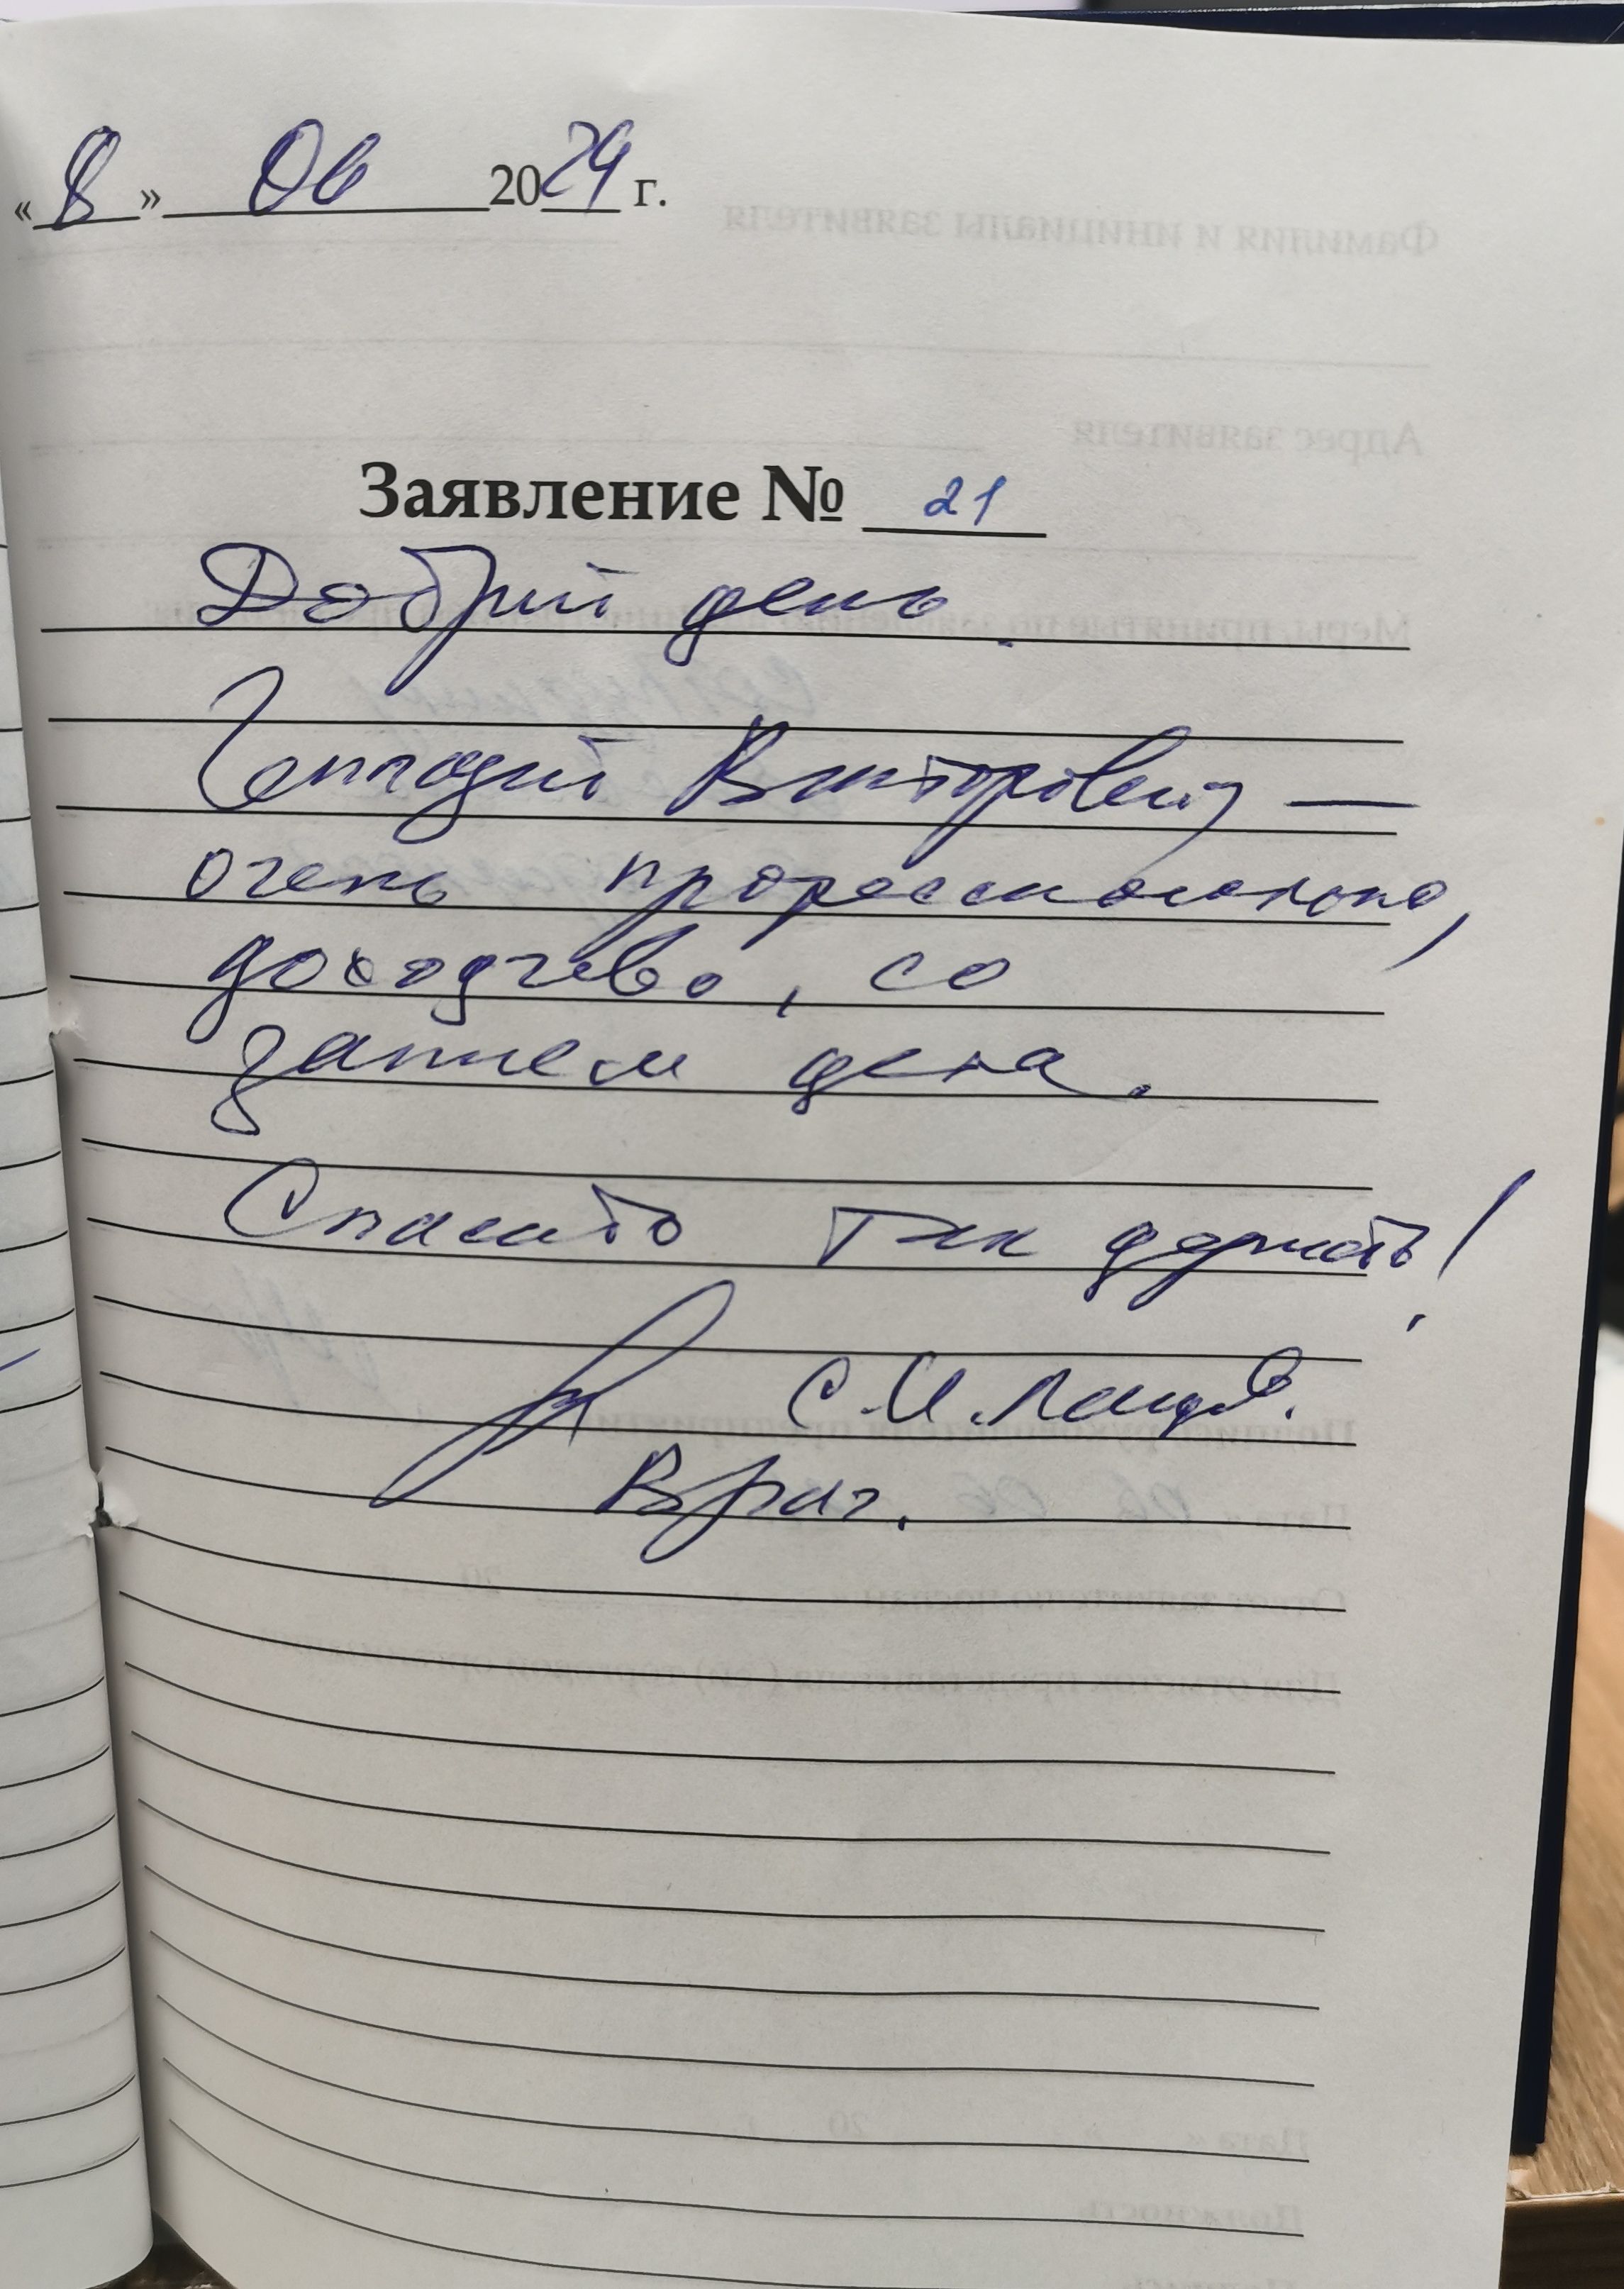 «8» 06 2024 г.
Заявление № 21
Добрый день.
Геннадий Викторович —
очень профессионально,
доходчево, со
знанием дела.
Спасибо Так держать!
С.И.
Врач.